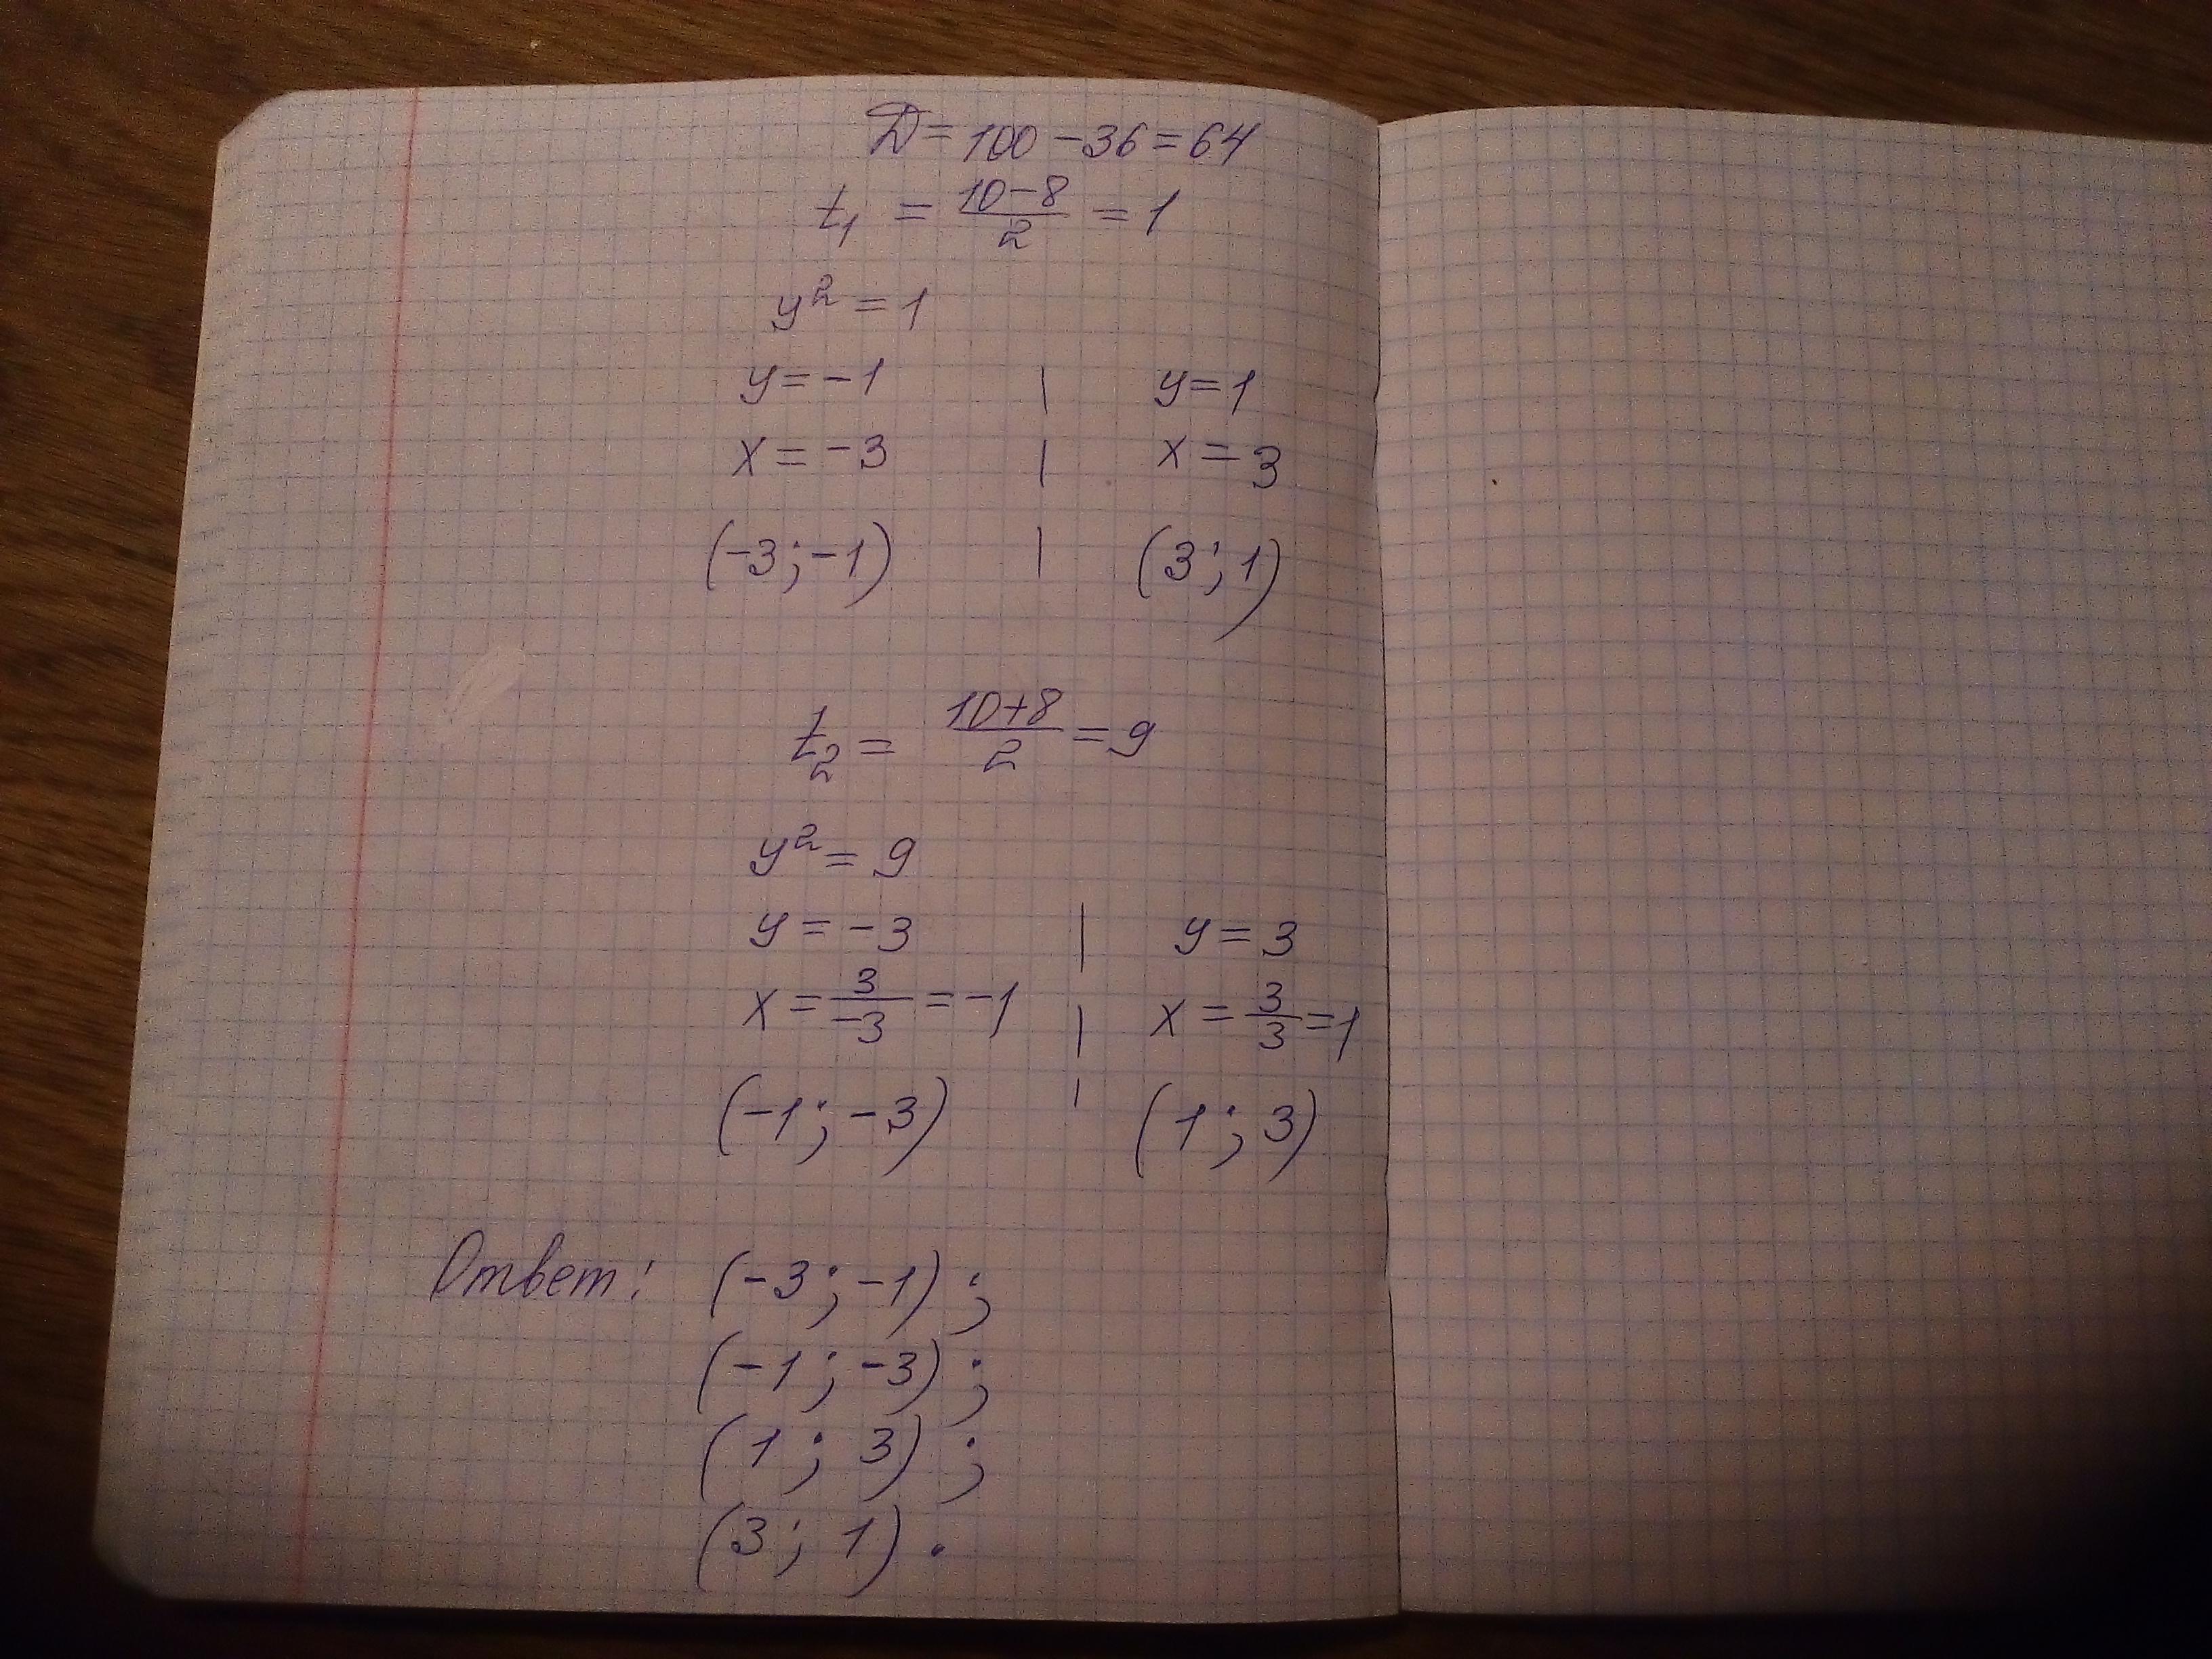 D = 100 - 36 = 64
t₁ = (10-8)/2 = 1
y² = 1
y = -1 | y = 1
x = -3 | x = 3
(-3; -1) | (3; 1)
t₂ = (10+8)/2 = 9
y² = 9
y = -3 | y = 3
x = 3/-3 = -1 | x = 3/3 = 1
(-1; -3) | (1; 3)
Ответ: (-3; -1);
(-1; -3);
(1; 3);
(3; 1).